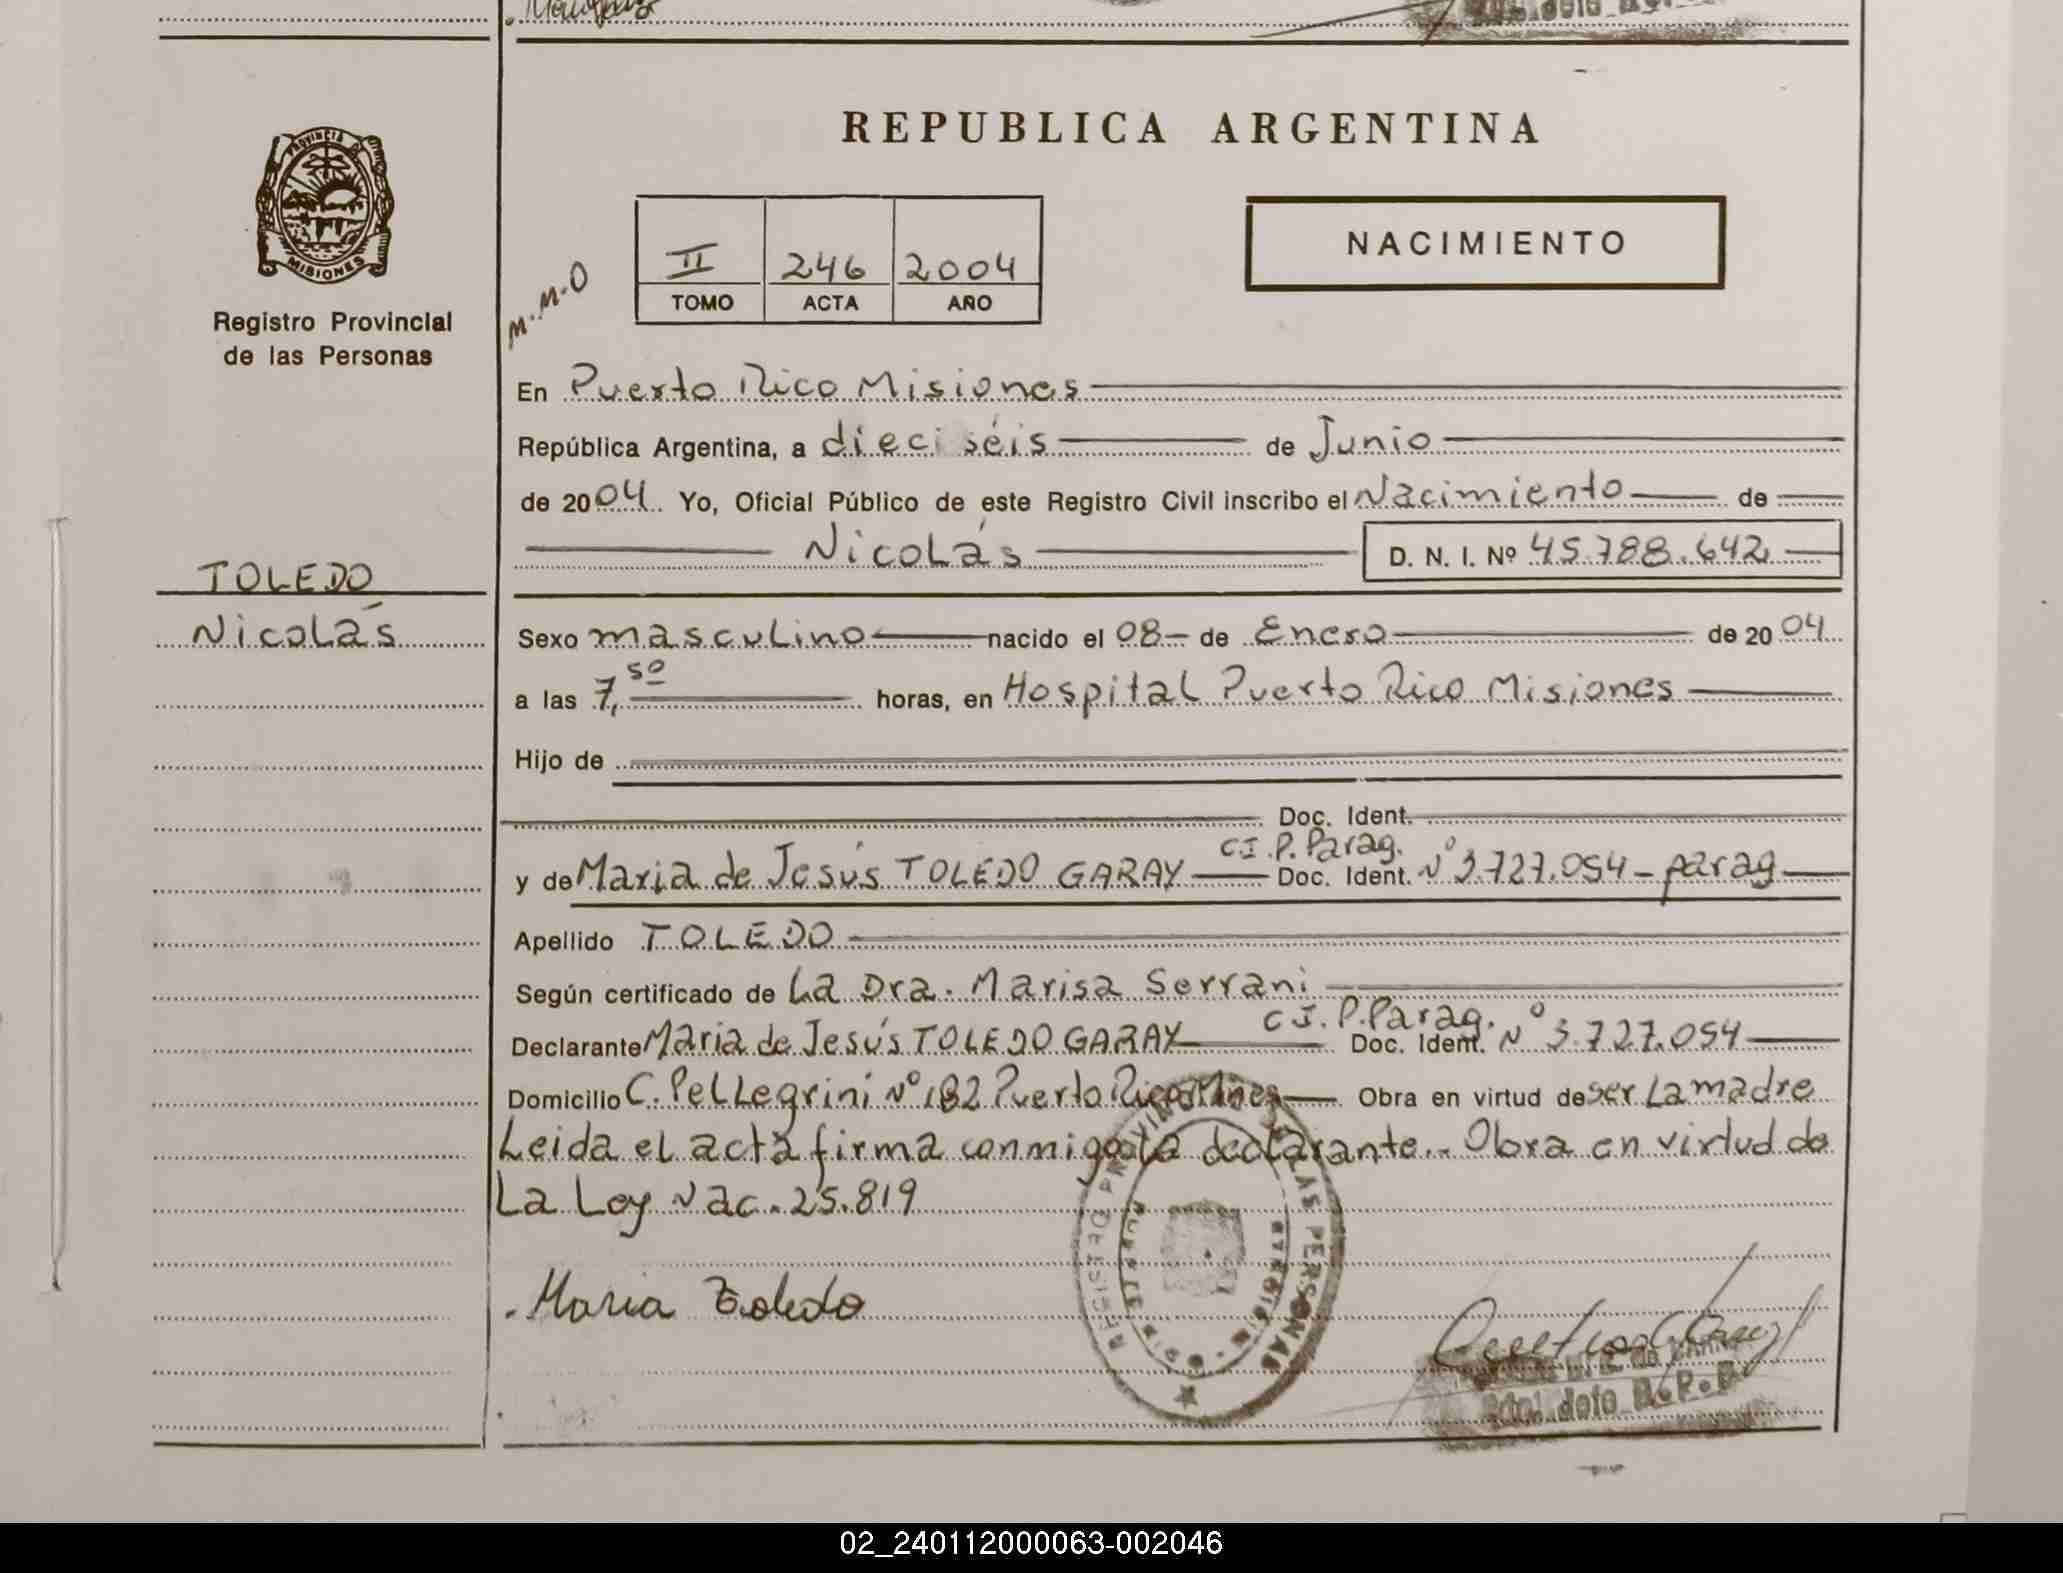 REPUBLICA ARGENTINA
PROVINCIA DE
MISIONES
Registro Provincial
de las Personas
TOLEDO
Nicolás
M.M.O
II 246 2004
TOMO ACTA AÑO
NACIMIENTO
En Puerto Rico Misiones
República Argentina, a dieciséis de Junio
de 2004 Yo, Oficial Público de este Registro Civil inscribo el Nacimiento de
Nicolás D. N. I. Nº 45.788.642
Sexo masculino nacido el 08 de Enero de 2004
a las 7,50 horas, en Hospital Puerto Rico Misiones
Hijo de
Doc. Ident.
C.I.P. Parag.
y de Maria de Jesús TOLEDO GARAY Doc. Ident. Nº 3.727.054 - parag
Apellido TOLEDO
Según certificado de La Dra. Marisa Serrani
C.I.P. Parag.
Declarante Maria de Jesús TOLEDO GARAY Doc. Ident. Nº 3.727.054
Domicilio C. Pellegrini Nº 182 Puerto Rico Mnes Obra en virtud de ser La madre
Leida el acta firma conmigo la declarante.. Obra en virtud de
La Ley Nac. 25.819
Maria Toledo
REGISTRO PROVINCIAL DE LAS PERSONAS
MISIONES
R.P.P.
02_240112000063-002046